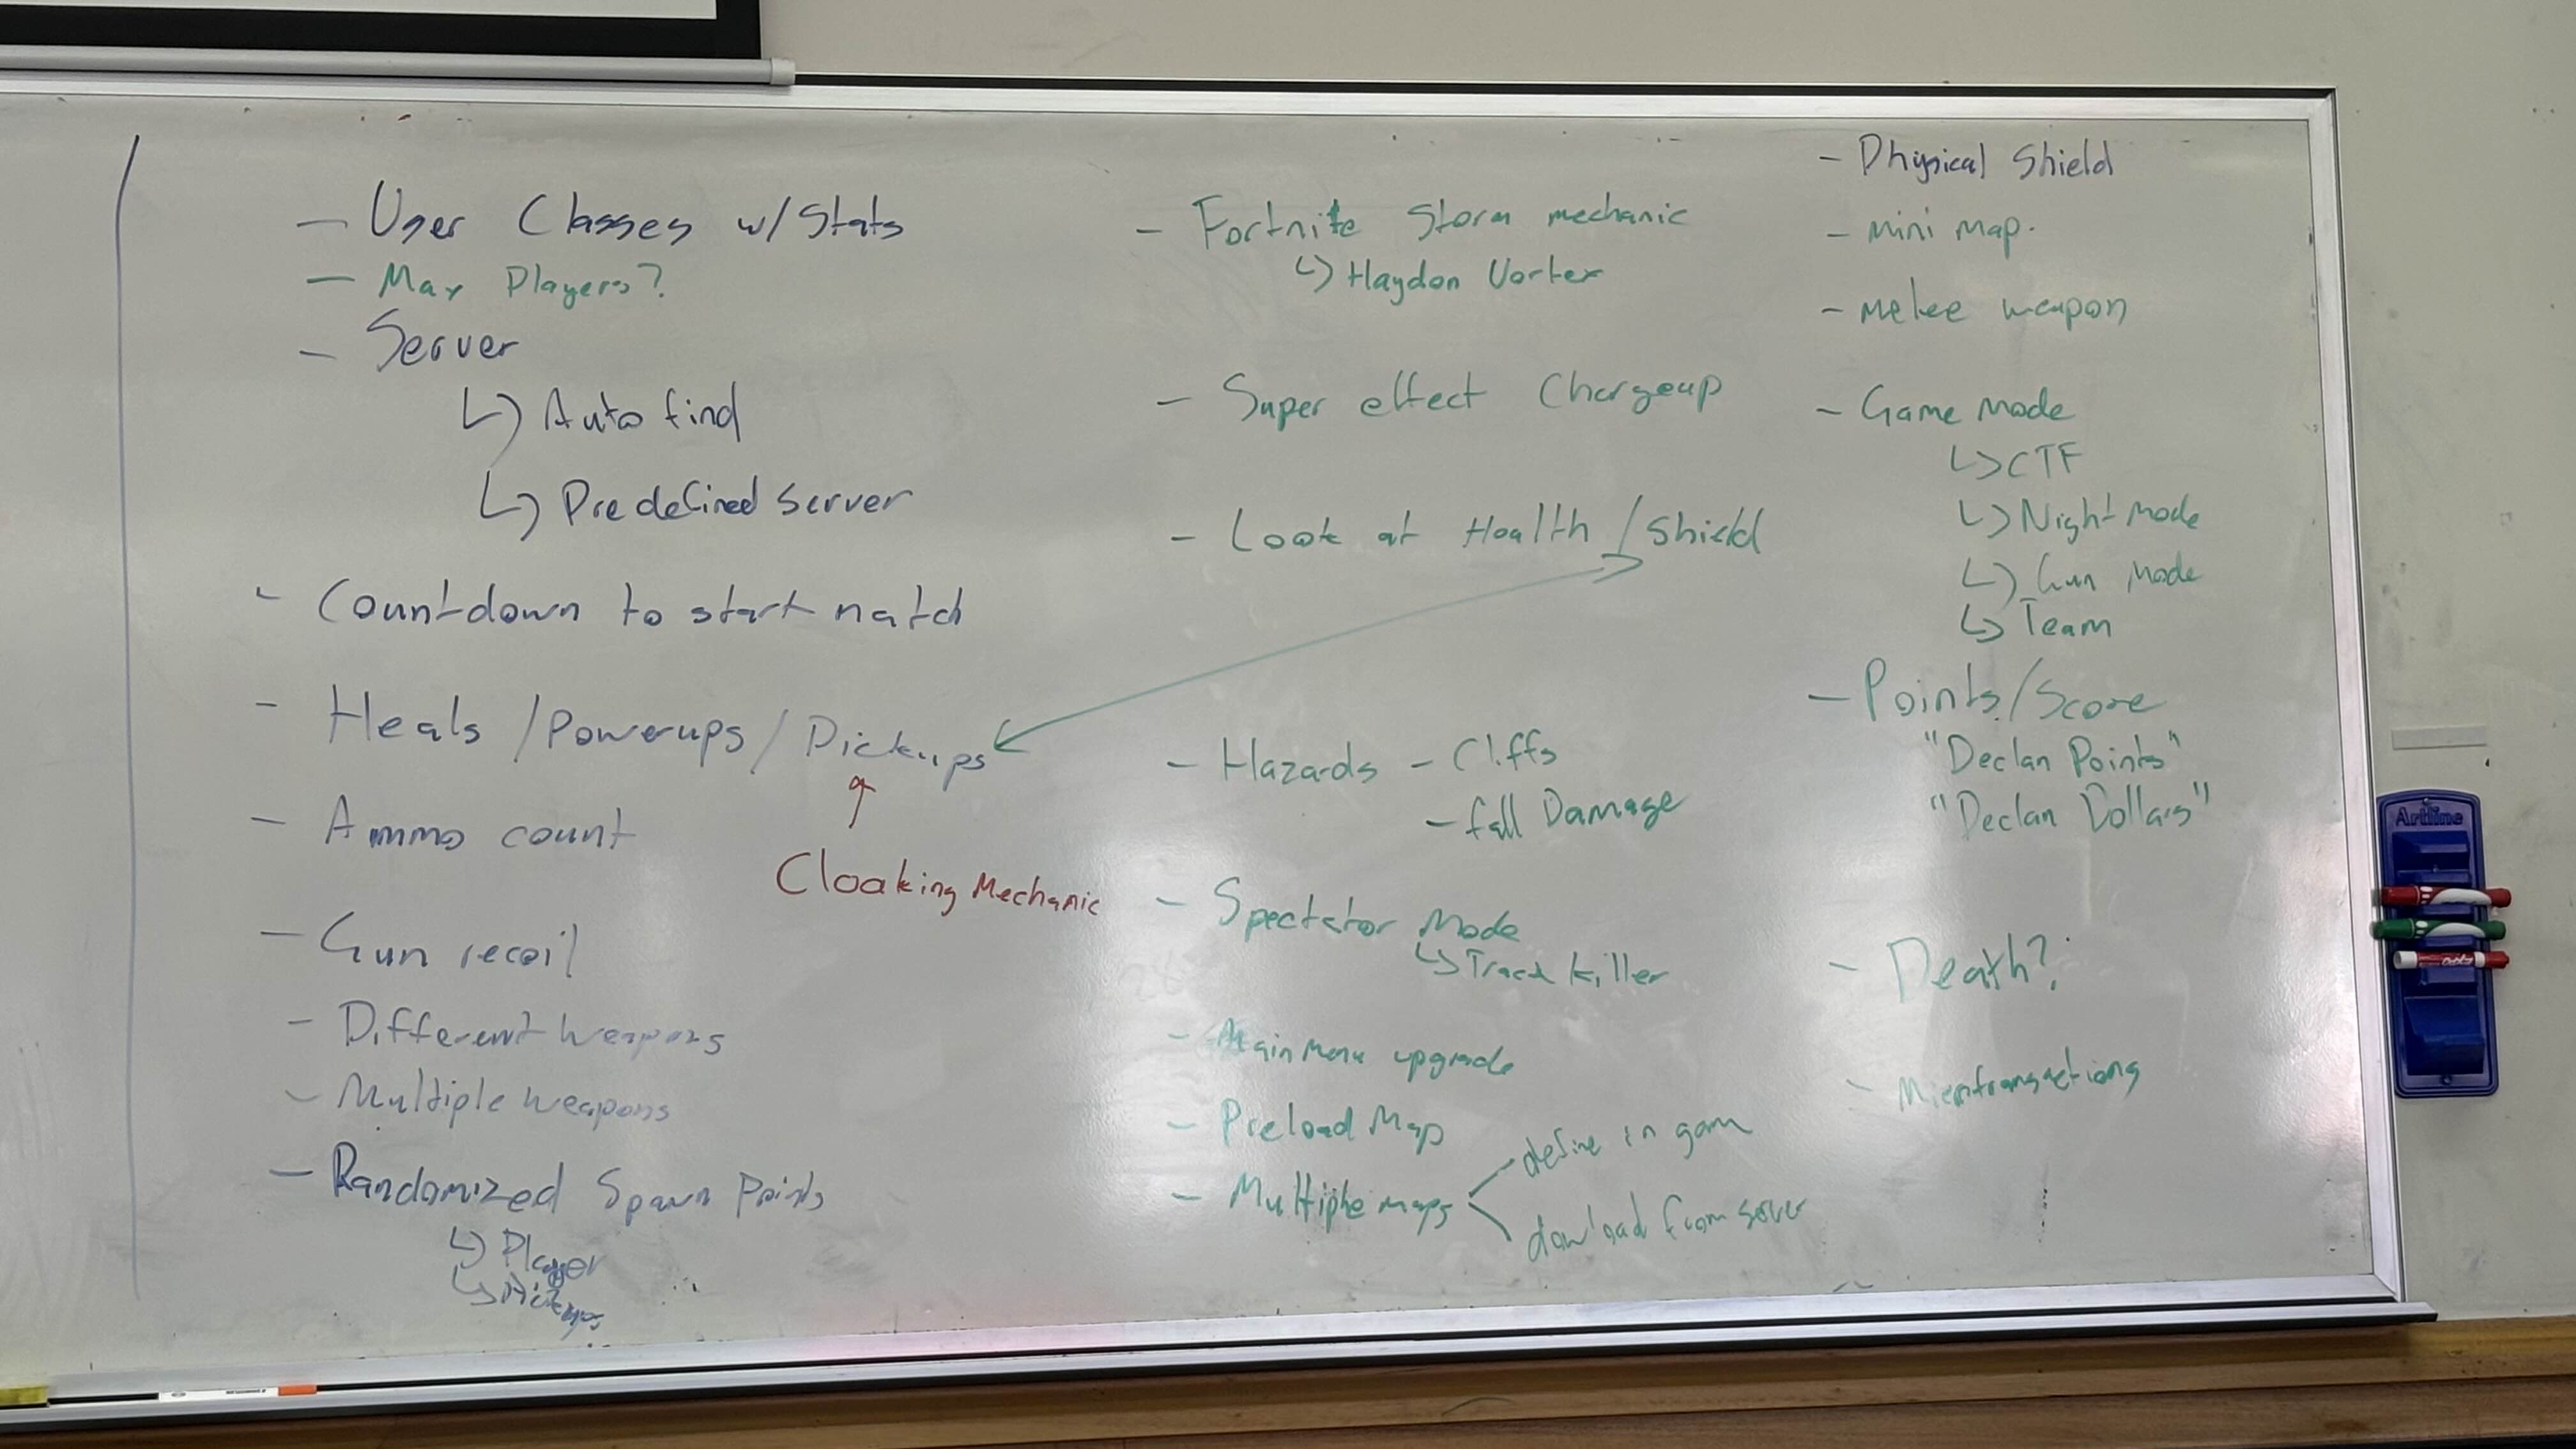 - User Classes w/ Stats
- Max Players?
- Server
↳ Auto find
↳ Predefined Server
- Countdown to start match
- Heals / Powerups / Pickups
Cloaking Mechanic
- Ammo count
- Gun recoil
- Different Weapons
- Multiple Weapons
- Randomized Spawn Points
↳ Player
↳ Pickups
- Fortnite Storm mechanic
↳ Haydon Vortex
- Super effect Chargeup
- Look at Health / Shield
- Hazards - Cliffs
- fall Damage
- Spectator Mode
↳ Track killer
- Main Menu upgrade
- Preload Map
- Multiple maps
define in gam
download from server
- Physical Shield
- mini map.
- melee weapon
- Game Mode
↳ CTF
↳ Night Mode
↳ Gun Mode
↳ Team
- Points / Score
"Declan Points"
"Declan Dollars"
- Death?
- Microtransactions
Artline